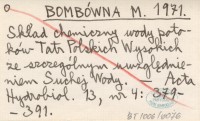 BOMBÓWNA M. 1971.
Skład chemiczny wody poto-
ków Tatr Polskich Wysokich
ze szczególnym uwzględnie-
niem Suchej Wody. Acta
Hydrobiol. 13, nr 4: 379-
-391.
BT 1006/0076